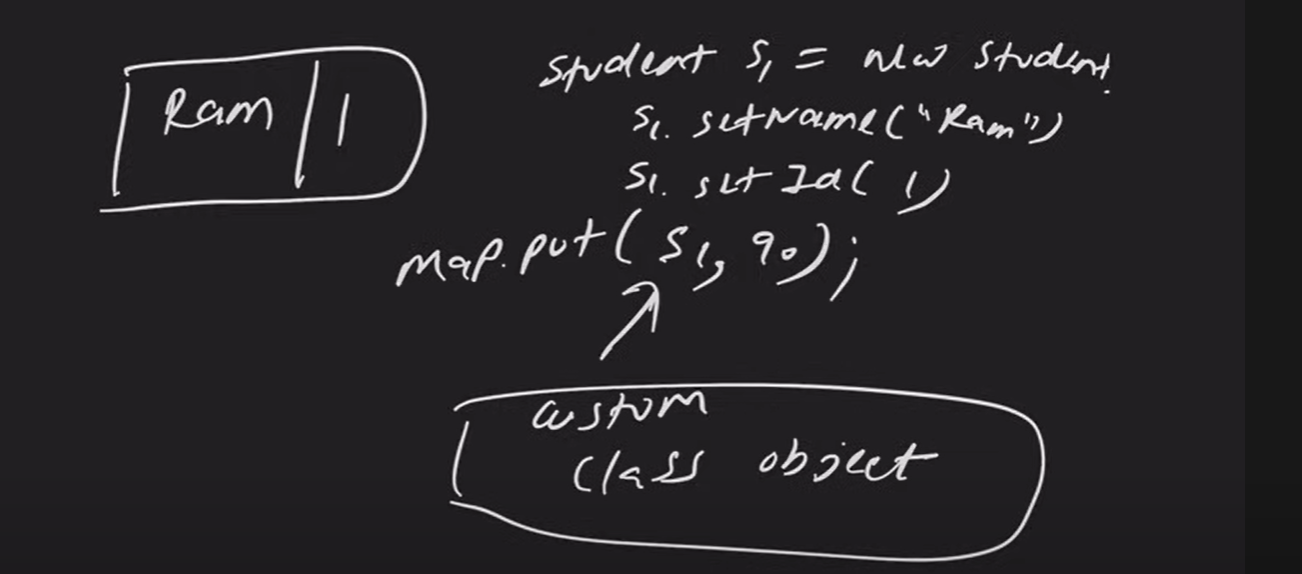 Ram | 1
Student s1 = new Student
s1. setName("Ram")
s1. setId( 1)
map.put( s1, 90);
custom
class object